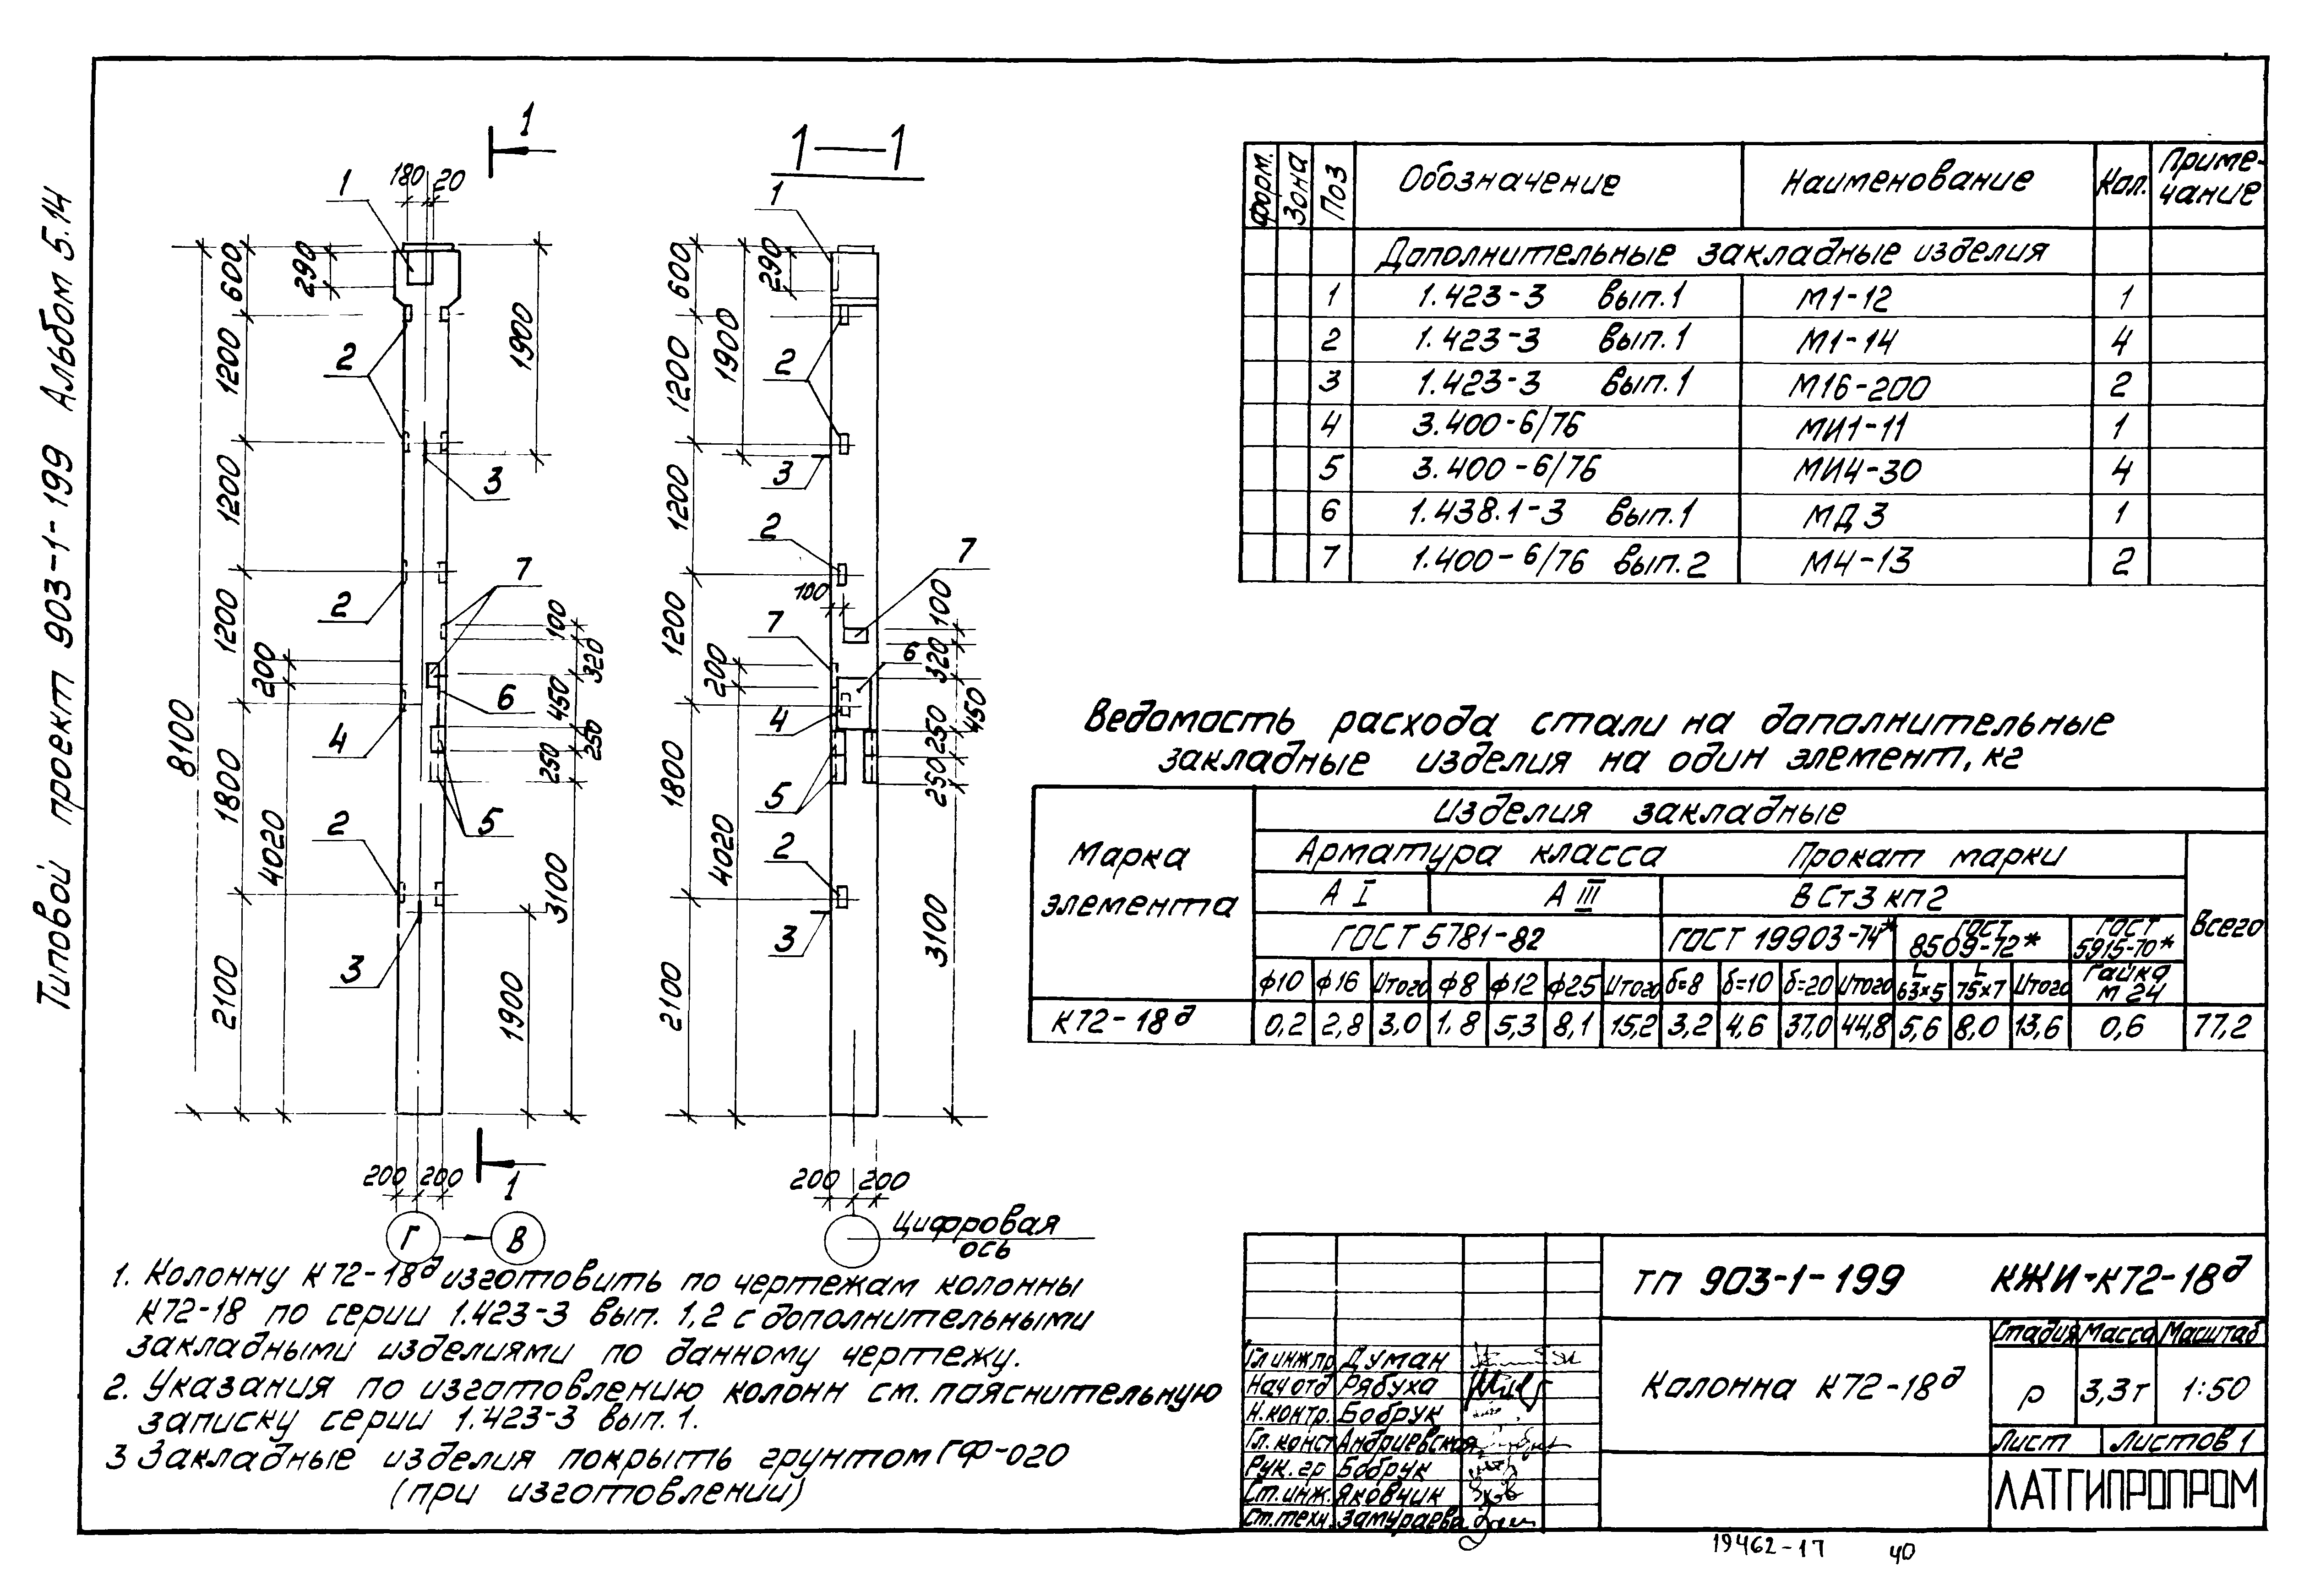 Типовой проект 903-1-199 Альбом 5.14
1
1—1
1
180
20
1
290
600
1200
1900
2
1200
3
2
1200
7
100
320
200
6
450
250
250
4
8100
5
1800
2
4020
3100
3
2100
1900
200
200
1
Г
В
1
290
600
1900
1200
2
3
1200
2
7
100
100
1200
7
200
6
320
450
4
250
250
5
1800
4020
2
3
3100
2100
200
200
Цифровая
ось
Форм. Зона Поз Обозначение Наименование Кол. Приме-
чание
Дополнительные закладные изделия
1 1.423-3 вып.1 М1-12 1
2 1.423-3 вып.1 М1-14 4
3 1.423-3 вып.1 М16-200 2
4 3.400-6/76 МИ1-11 1
5 3.400-6/76 МИ4-30 4
6 1.438.1-3 вып.1 МД3 1
7 1.400-6/76 вып.2 М4-13 2
Ведомость расхода стали на дополнительные
закладные изделия на один элемент, кг
Марка
элемента
Изделия закладные
Арматура класса Прокат марки
Всего
А I А III ВСт3кп2
ГОСТ 5781-82 ГОСТ 19903-74* ГОСТ 8509-72* ГОСТ 5915-70*
ϕ10 ϕ16 Итого ϕ8 ϕ12 ϕ25 Итого δ=8 δ=10 δ=20 Итого L 63×5 L 75×7 Итого Гайка М 24
К72-18д 0,2 2,8 3,0 1,8 5,3 8,1 15,2 3,2 4,6 37,0 44,8 5,6 8,0 13,6 0,6 77,2
1. Колонну К72-18д изготовить по чертежам колонны
К72-18 по серии 1.423-3 вып. 1,2 с дополнительными
закладными изделиями по данному чертежу.
2. Указания по изготовлению колонн см. пояснительную
записку серии 1.423-3 вып. 1.
3 Закладные изделия покрыть грунтом ГФ-020
(при изготовлении)
ТП 903-1-199 КЖИ-К72-18д
Колонна К72-18д
Стадия Масса Масштаб
Р 3,3т 1:50
Лист Листов 1
ЛАТГИПРОПРОМ
Гл инж пр Думан
Нач отд Рябуха
Н.контр. Бобрук
Гл. конст Андриевская
Рук. гр Бобрук
Ст.инж. Яковчик
Ст.техн. Замураева
19462-17 40